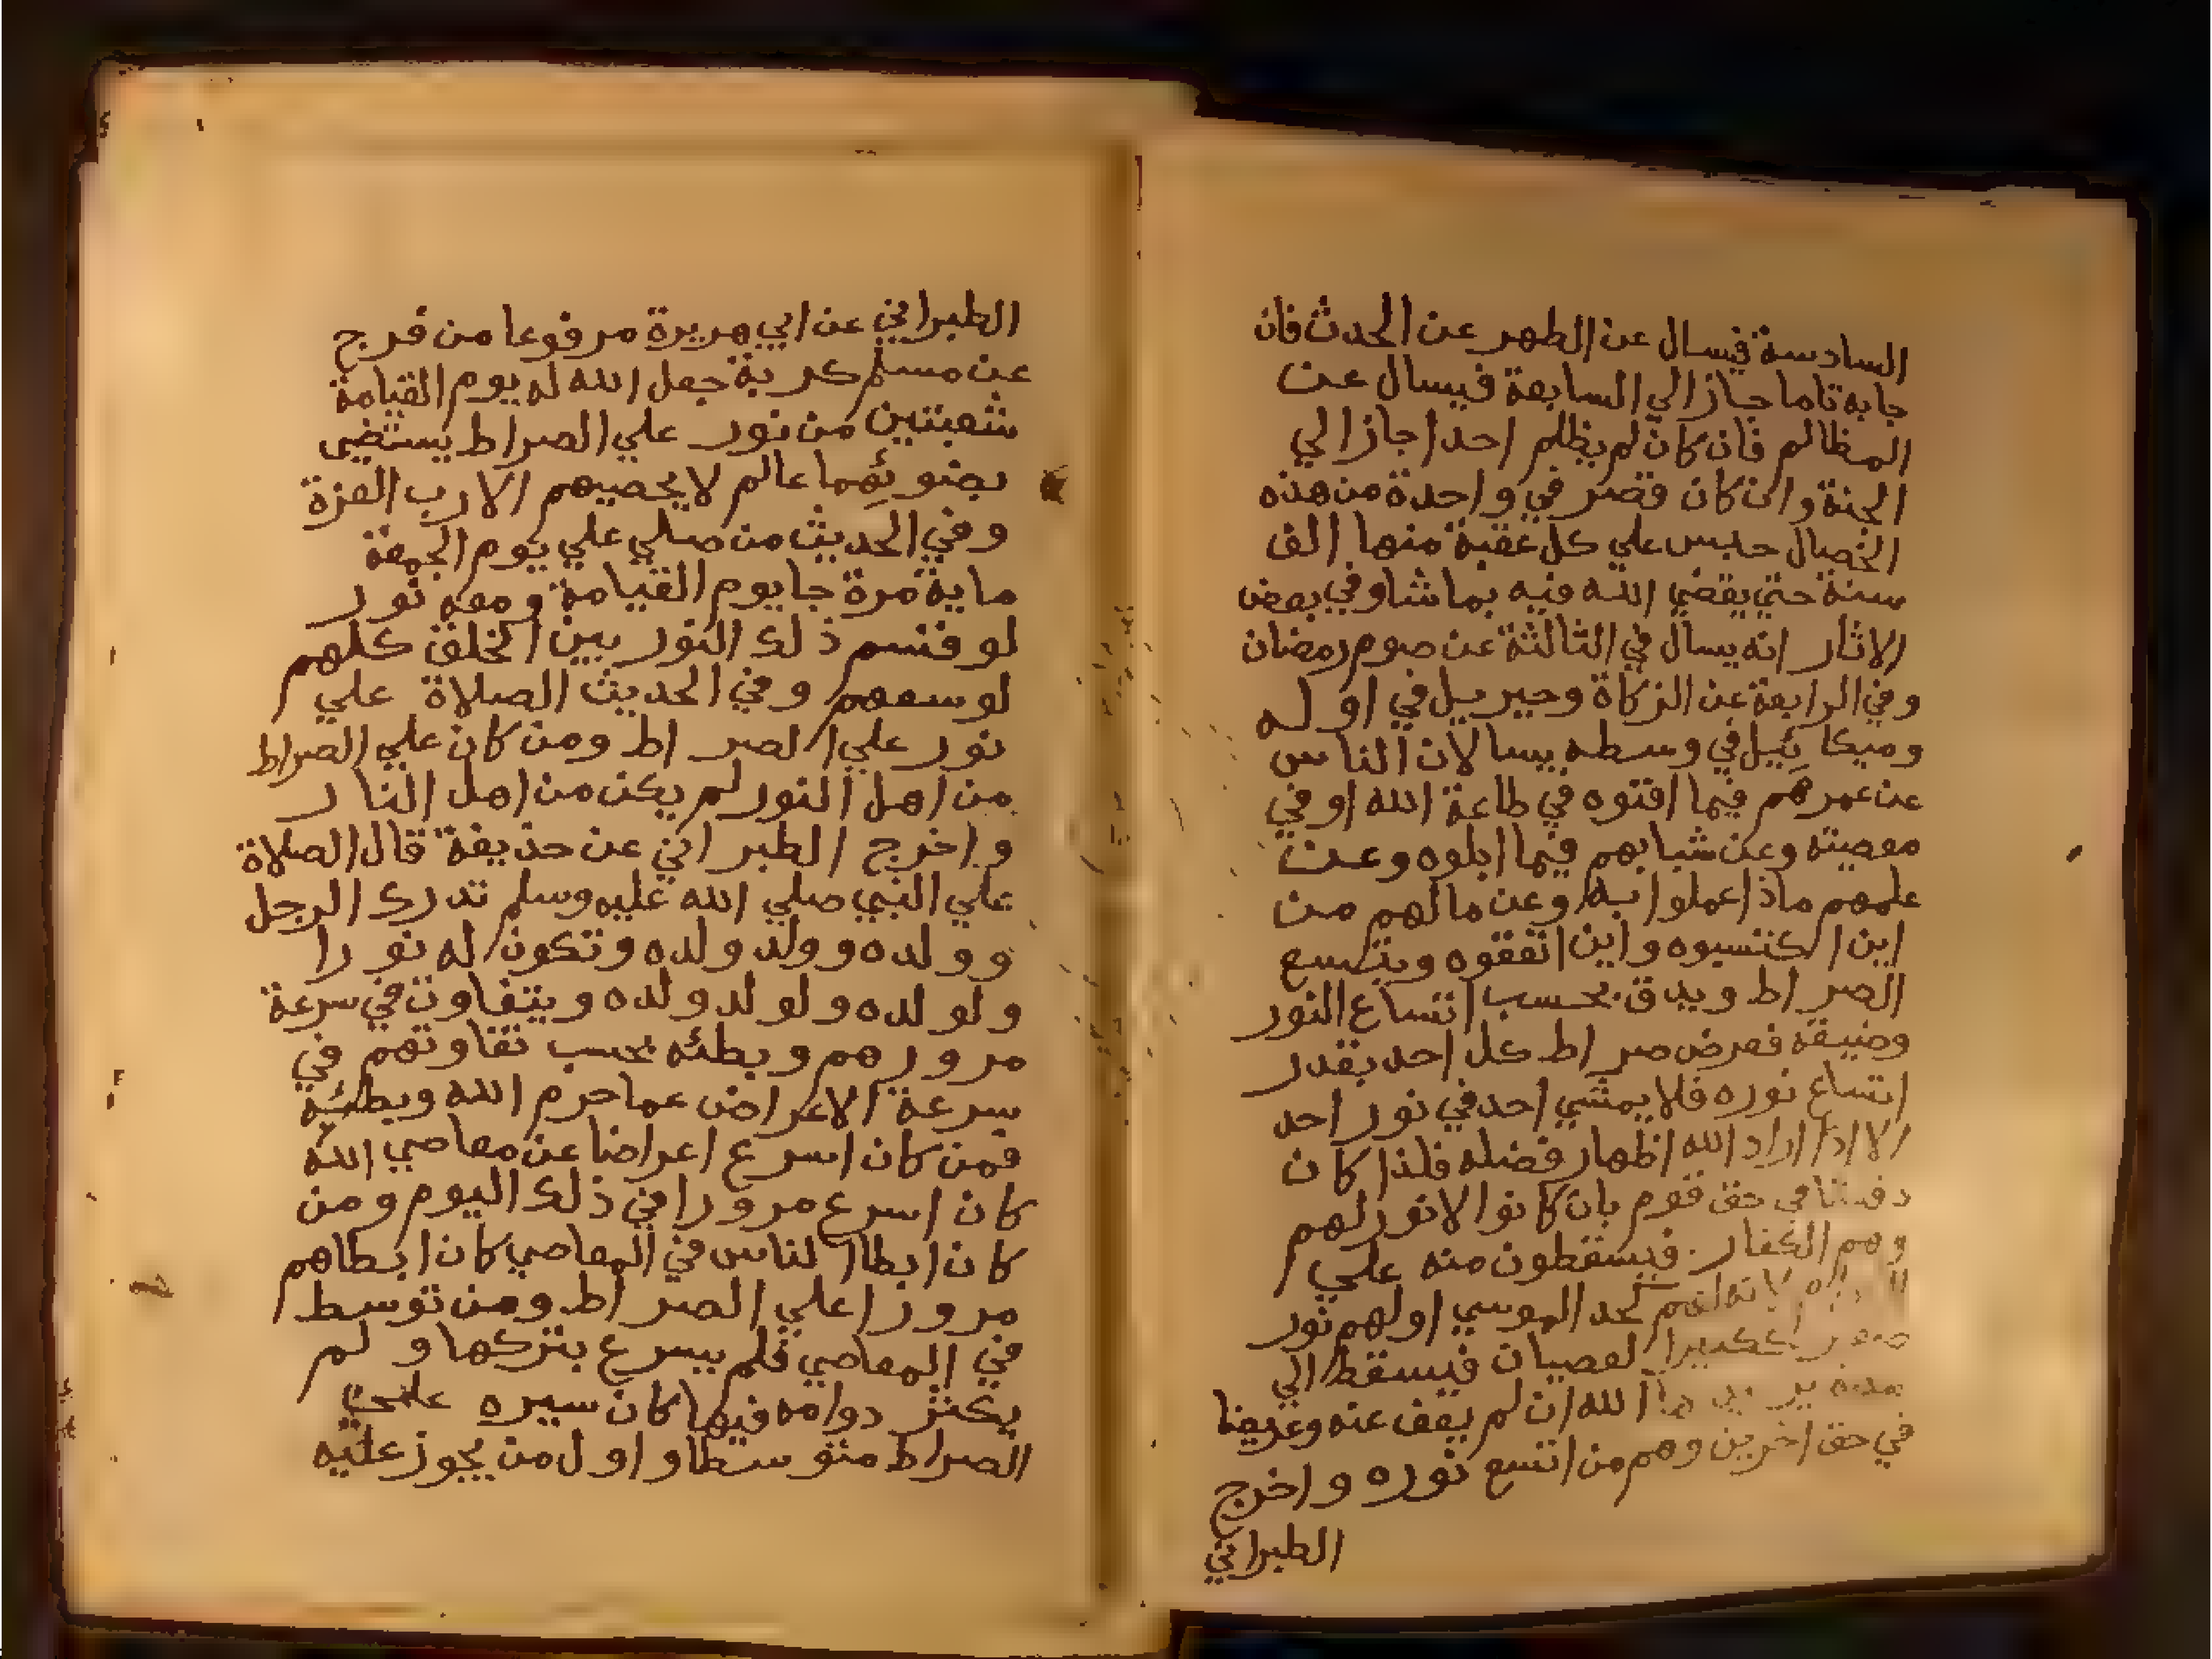 السادسة فيسال عن الطهر عن الحدث فان
جابه تاما جاز الي السابعة فيسال عن
المظالم فان كان لم يظلم احدا جاز الي
الجنة وان كان قصر في واحدة من هذه
الخصال حبس علي كل عقبة منها الف
سنة حتي يقضي الله فيه بما شا وفي بعض
الاثار انه يسال في الثالثة عن صوم رمضان
وفي الرابعة عن الزكاة وجبريل في اوله
وميكائيل في وسطه يسالان الناس
عن عمرهم فيما افنوه في طاعة الله او في
معصيته وعن شبابهم فيما ابلوه وعن
علمهم ماذا عملوا به وعن مالهم من
اين اكتسبوه واين انفقوه ويتسع
الصراط ويدق بحسب اتساع النور
وضيقه فعرض صراط كل احد بقدر
اتساع نوره فلا يمشي احد في نور احد
الا اذا اراد الله اظهار فضله فلذا كان
في حق قوم بان كانوا لا نور لهم
وهم الكفار فيسقطون منه علي
لحد الموسي او لهم نور
لعصيان فيسقط الي
الله ان لم يعف عنه وعريضا
في حق اخرين وهم من اتسع نوره واخرج
الطبراني
الطبراني عن ابي هريرة مرفوعا من فرج
عن مسلم كربة جعل الله له يوم القيامة
شعبتين من نور علي الصراط يستضي
بضوئهما عالم لا يحصيهم الا رب العزة
وفي الحديث من صلي علي يوم الجمعة
ماية مرة جا يوم القيامة ومعه نور
لو قسم ذلك النور بين الخلق كلهم
لوسعهم وفي الحديث الصلاة علي
نور علي الصراط ومن كان علي الصراط
من اهل النور لم يكن من اهل النار
واخرج الطبراني عن حذيفة قال الصلاة
علي النبي صلي الله عليه وسلم تدرك الرجل
وولده وولد ولده وتكون له نورا
ولولده ولولد ولده ويتفاوت في سرعة
مرورهم وبطئه بحسب تفاوتهم في
سرعة الاعراض عما حرم الله وبطئه
فمن كان اسرع اعراضا عن معاصي الله
كان اسرع مرورا في ذلك اليوم ومن
كان ابطا الناس في المعاصي كان ابطاهم
مرورا علي الصراط ومن توسط
في المعاصي فلم يسرع بتركها ولم
يكثر دوامه فيها كان سيره علي
الصراط متوسطا واول من يجوز عليه